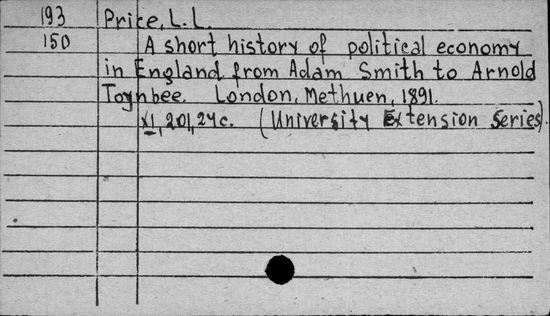 193 Price, L. L.
150 A short history of political economy
in England from Adam Smith to Arnold
Toynbee. London, Methuen, 1891.
XI, 201, 24c. (University Extension Series).